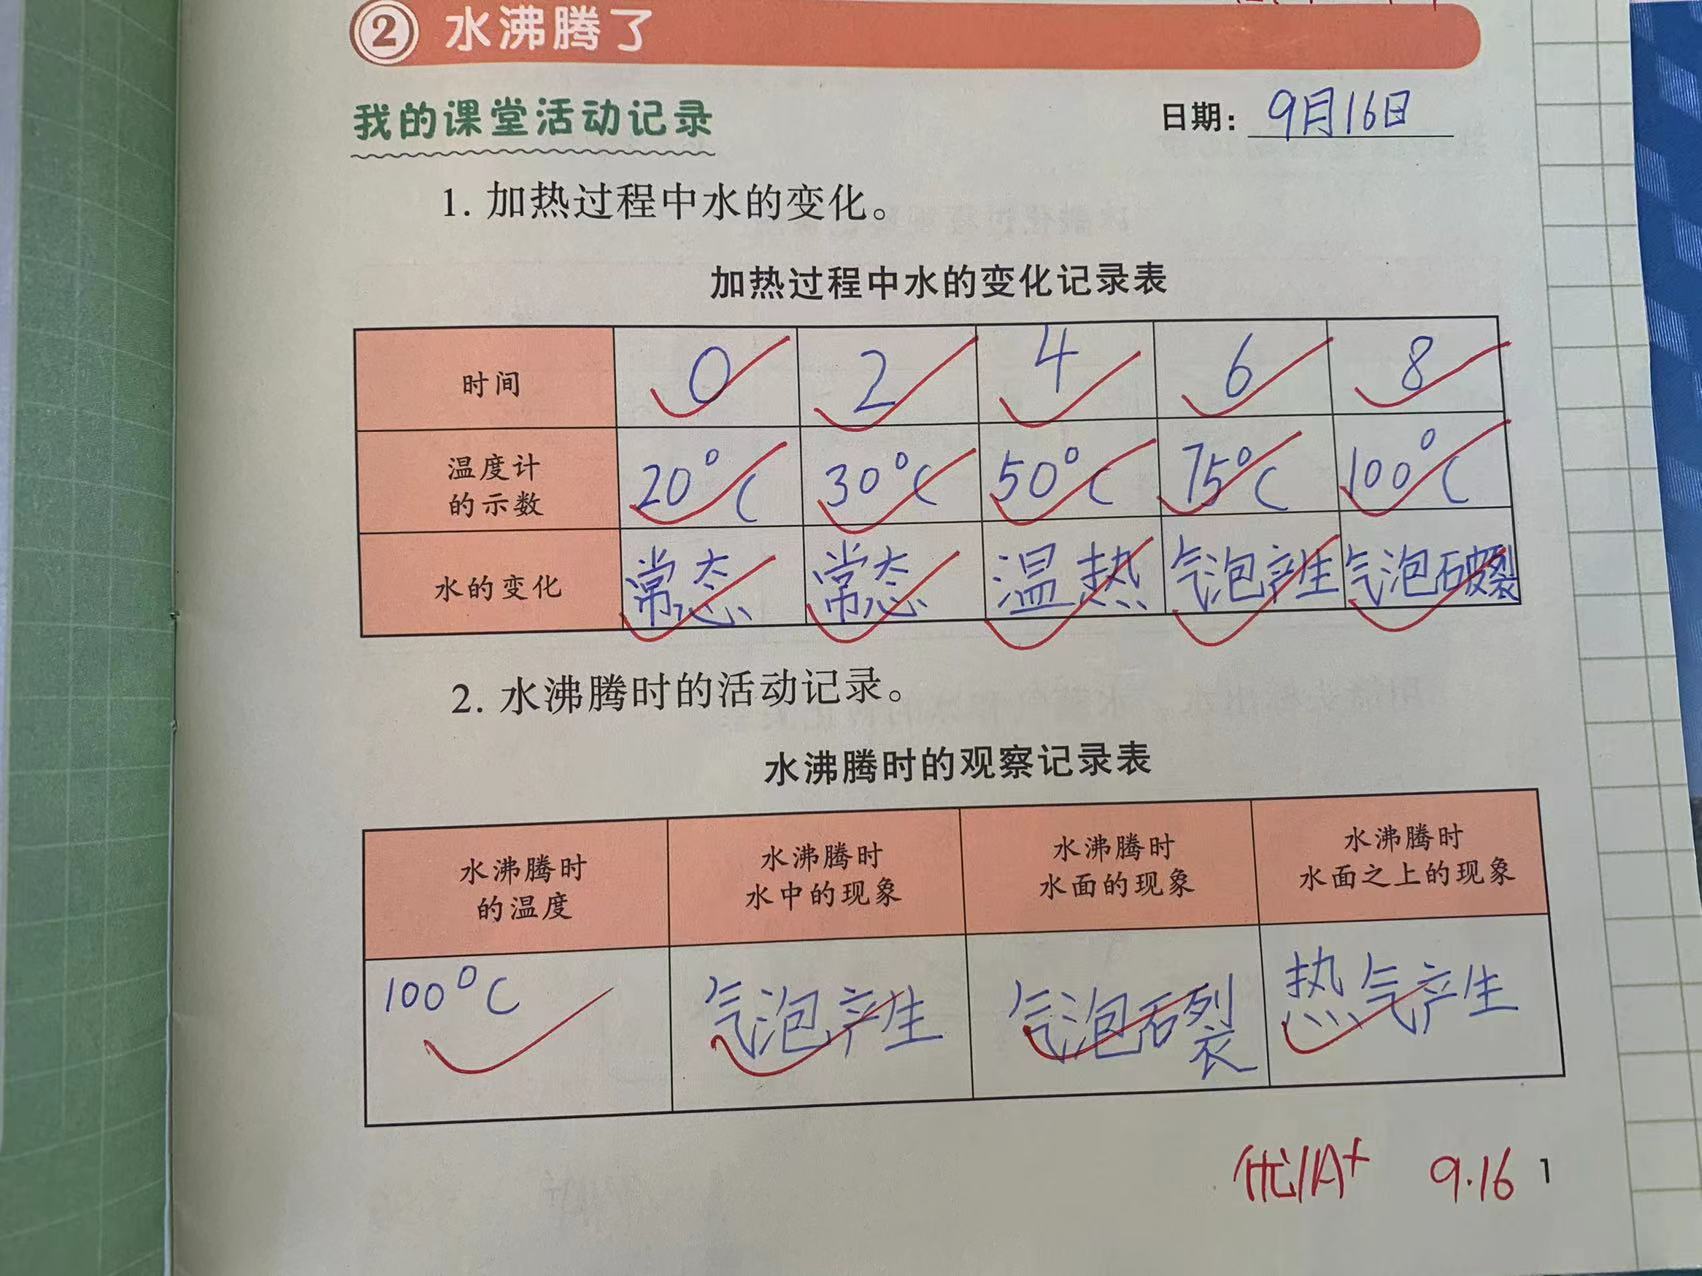 ② 水沸腾了
我的课堂活动记录 日期: 9月16日
1. 加热过程中水的变化。
加热过程中水的变化记录表
时间 0 2 4 6 8
温度计的示数 20°C 30°C 50°C 75°C 100°C
水的变化 常态 常态 温热 气泡产生 气泡破裂
2. 水沸腾时的活动记录。
水沸腾时的观察记录表
水沸腾时的温度 水沸腾时水中的现象 水沸腾时水面的现象 水沸腾时水面之上的现象
100°C 气泡产生 气泡破裂 热气产生
优/A+ 9.16 1